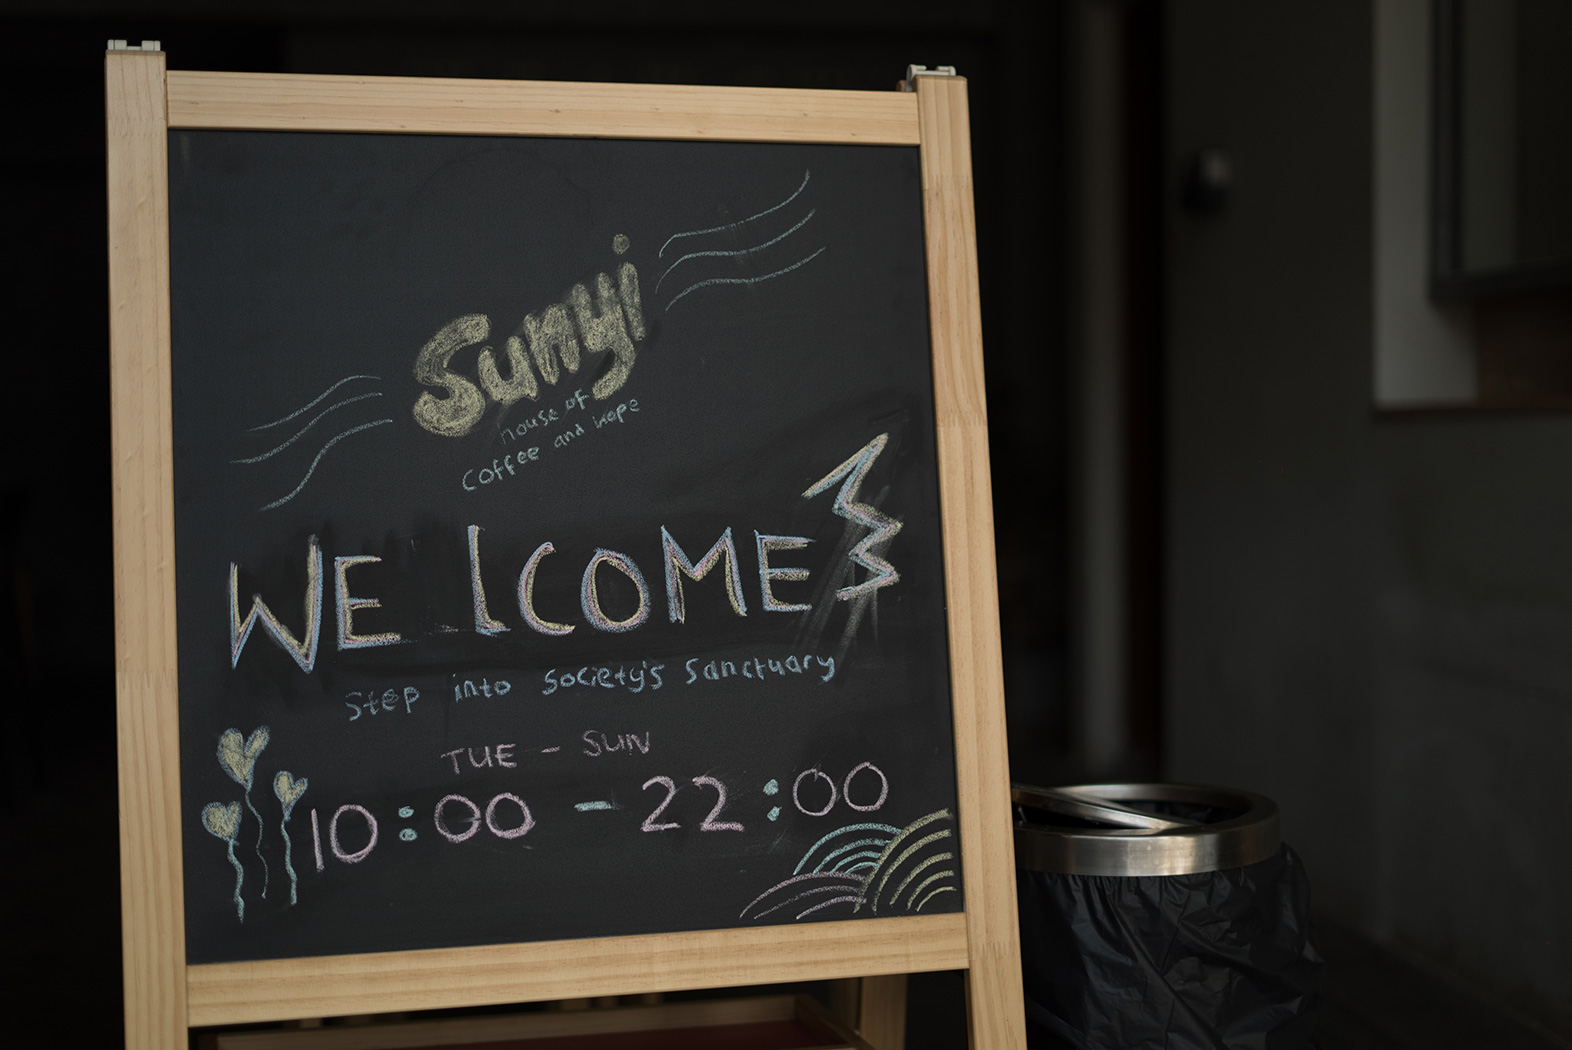 Sunyi
house of
coffee and hope
WELCOME
Step into society's Sanctuary
TUE - SUN
10:00 - 22:00